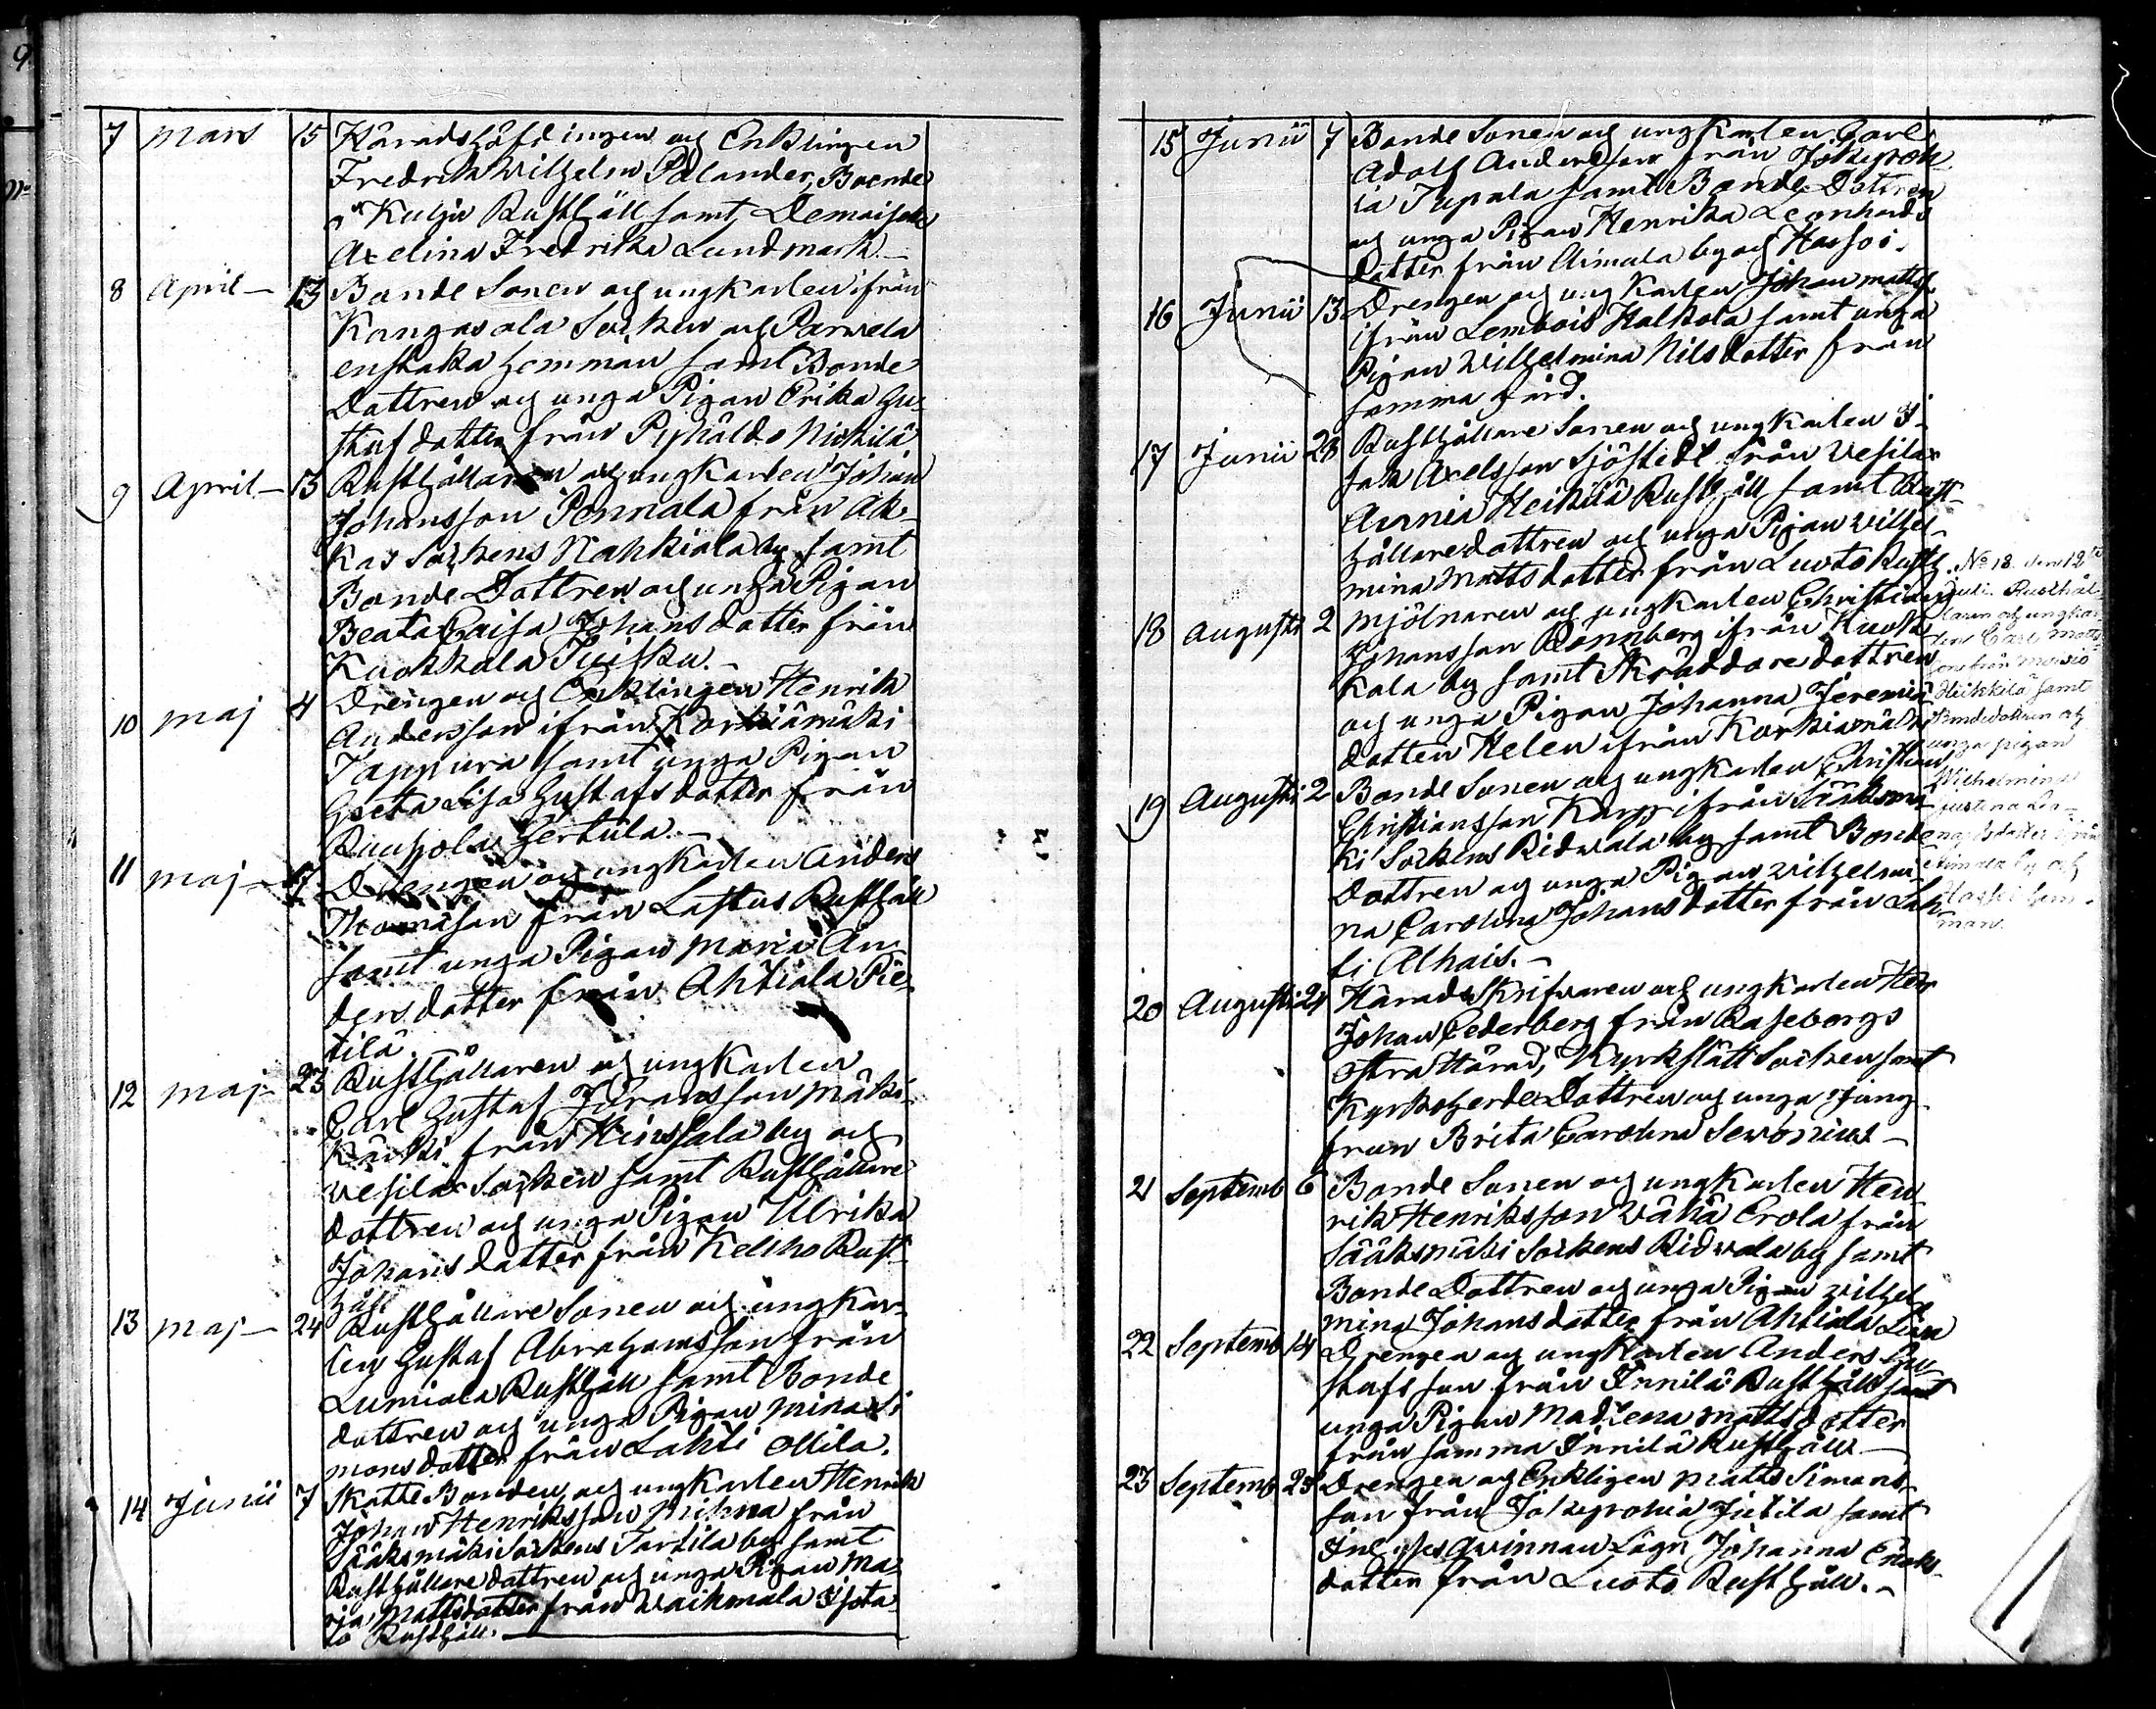 7 Mars 15 Häradshöfdingen och Enklingen
Fredrik Wilhelm Palander, Boende
å Kulju Rusthåll samt Demoiselle
Axelina Fredrika Lundmark.-
8 April - 13 Bonde Sonen och ungkarlen ifrån
Kangasala Socken och Parvela
enstaka hemman samt Bonde
Dottren och unga Pigan Erika Gu-
stafsdotter från Pyhäldo Nickilä
9 April - 13 Rusthållaren och ungkarlen Johan
Johansson Pennala från Ak-
kas Sockens Nahkiala by samt
Bonde Dottren och unga Pigan
Beata Caisa Johansdotter från
Kuokkala Tuisku.-
10 Maj 4 Drengen och Enklingen Henrik
Andersson ifrån Korkiämäki
Jappura samt unga Pigan
Greta Lisa Gustafsdotter från
Ruuhola Hertula.-
11 Maj - 17 Drengen och ungkarlen Anders
Thomasson från Lastus Rusthåll
samt unga Pigan Maria An-
dersdotter från Ahtiala Pie-
tilä.
12 Maj - 23 Rusthållaren och ungkarlen
Carl Gustaf Göransson Mäki-
från Hinsala by och
Vesilax Socken samt Rusthållare
dottren och unga Pigan Ulrika
Johansdotter från Kelho Rust-
håll
13 Maj - 24 Rusthållare Sonen och ungkar-
len Gustaf Abrahamsson från
Lumiala Rusthåll samt Bonde
dottren och unga Pigan Mina Si-
monsdotter från Lahti Ollila.
14 Junii 7 Skatte Bonden och ungkarlen Henrik
Johan Henriksson från
Sääksmäki Sockens Tarttila by samt
Rusthållare dottren och unga Pigan Ma-
ria Mattsdotter från Waikmala Isota-
lo Rusthåll.
15 Junii 7 Bonde Sonen och ungkarlen Carl
Adolf Andersson från Jokipoh-
ia Tupala samt Bonde Dottren
och unga Pigan Henrika Leonhards
dotter från Aimala by och Hassoi.
16 Junii 13 Drengen och ung Karlen Johan Matts:
ifrån Lembois Halkola samt unga
Pigan Wilhelmina Nilsdotter från
samma gård.
17 Junii 28 Rusthållare Sonen och ungkarlen I-
sak Axelsson Sjöstedt från Vesilax
Heikkilä Rusthåll samt Rust-
hållaredottren och unga Pigan Wilhel-
mina Mattsdotter från Luoto Rusth.
18 Augusti 2 Mjölnaren och ungkarlen Christian
Johansson Rönnberg ifrån Kuok-
kala by samt Skräddaredottren
och unga Pigan Johanna Jeremia
dotter Helen ifrån Korkiamäki
19 Augusti 2 Bonde Sonen och ungkarlen Christian
Christiansson Karppi ifrån Sääksmä-
ki Sockens Ridvala by samt Bonde
Dottren och unga Pigan Wilhelmi-
na Carolina Johansdotter från Lah-
ti Alhais.-
20 Augusti 24 Häradsskrifvaren och ungkarlen Herr
Johan Cederberg från Raseborgs
östra Härad, Kyrkslätt Socken samt
Kyrkoherde Dottren och unga Jung-
frun Brita Carolina Sevonius -
21 Septemb 6 Bonde Sonen och ungkarlen Hen-
rik Henriksson Vähä Erola från
Sääksmäki Sockens Ridvala by samt
Bonde Dottren och unga Pigan Wilhel-
mina Johansdotter från Ahtiala
22 Septemb 14 Drengen och ungkarlen Anders Gu-
stafsson från Innilä Rusthåll samt
unga Pigan Madlena Mattsdotter
från samma Innilä Rusthåll -
23 Septemb 28 Drengen och Enklingen Matts Simons-
son från Jokipohia Jutila samt
Inhyses Qvinnan Lägr: Johanna Eriks-
dotter från Luoto Rusthåll.-
No 18. den 12te
Juli Rusthål-
laren och ungkar-
len Carl Matts-
son från Moisio
Heikkilä samt
Bondedottren och
unga pigan
Wilhelmina
Justina Leo-
nardsdotter från
Aimala by och
Hassoi hem-
man.